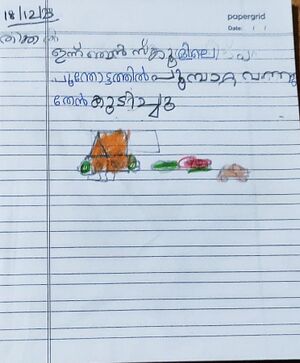 18/12/23
papergrid
Date: / /
തിങ്കൾ
ഇന്ന് ഞാൻ സ്കൂളിലെ
പൂന്തോട്ടത്തിൽ പൂമ്പാറ്റ വന്നു
തേൻ കുടിച്ചു